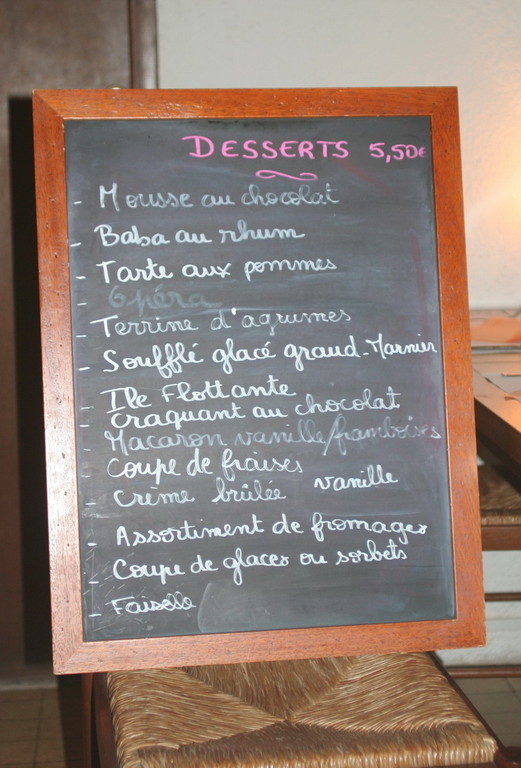 DESSERTS 5,50€
- Mousse au chocolat
- Baba au rhum
- Tarte aux pommes
- Opéra
- Terrine d'agrumes
- Soufflé glacé grand-Marnier
- Ile Flottante
- Craquant au chocolat
- Macaron vanille/framboises
- Coupe de fraises
- Crème brûlée vanille
- Assortiment de fromages
- Coupe de glaces ou sorbets
- Faisselle